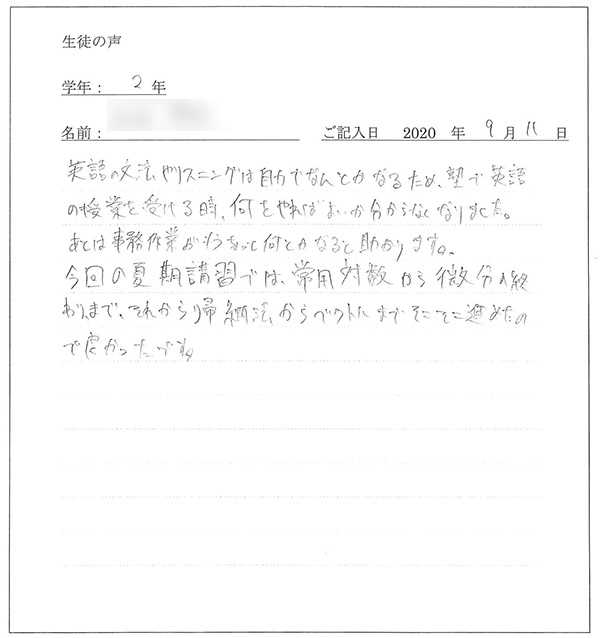 生徒の声
学年： 2 年
名前：
ご記入日 2020 年 9 月 11 日
英語の文法やリスニングは自力でなんとかなるため、塾で英語
の授業を受ける時、何をやればよいか分からなくなりました。
あとは事務作業がもうちょっと何とかなると助かります。
今回の夏期講習では、常用対数から微分の終
わりまで、それから帰納法からベクトルまでそこそこ進めたの
で良かったです。